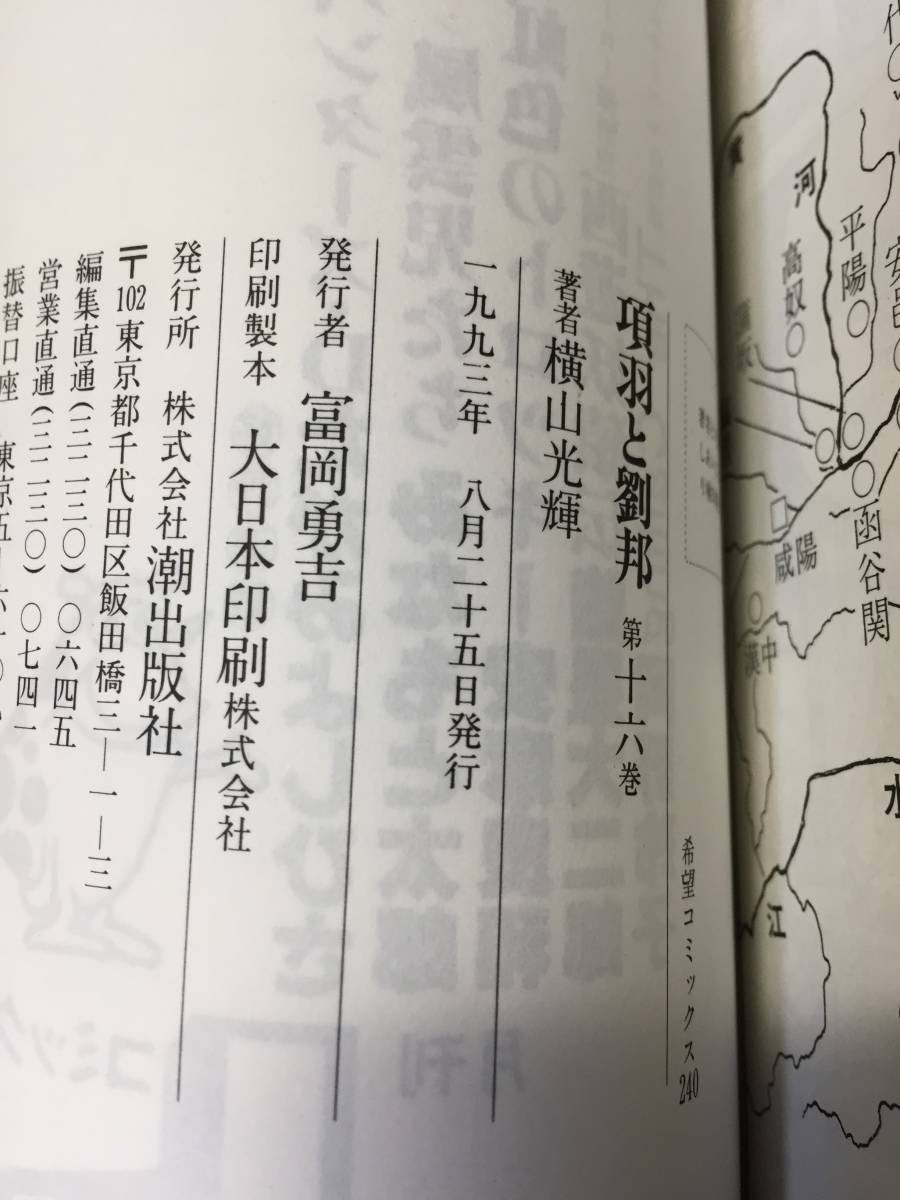 希望コミックス240
項羽と劉邦 第十六巻
著者 横山光輝
一九九三年 八月二十五日発行
発行者 富岡勇吉
印刷製本 大日本印刷株式会社
発行所 株式会社潮出版社
〒102 東京都千代田区飯田橋三―一―三
編集直通(三二三〇)〇六四五
営業直通(三二三〇)〇七四一
振替口座 東京五―六一
河
高奴
平陽
安邑
代
函谷関
咸陽
漢中
江
水